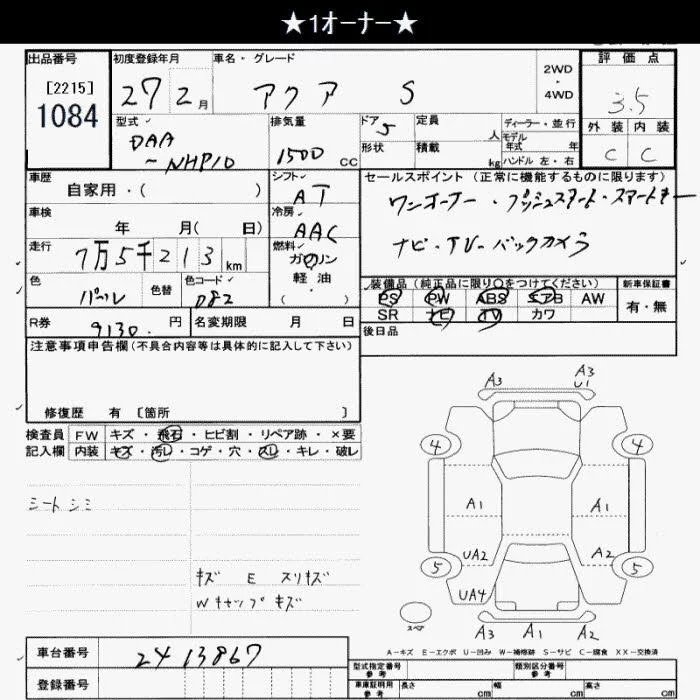 ★1オーナー★
出品番号
[2215]
1084
初度登録年月
27 2月
車名・グレード
アクア S
2WD
・
4WD
評価点
3.5
外装 内装
C C
型式
DAA
-NHP10
排気量
1500 CC
ドア 5
形状
定員 人
積載 kg
ディーラー・並行
モデル
年式 年
ハンドル 左・右
車歴
自家用・( )
シフト
AT
セールスポイント(正常に機能するものに限ります)
ワンオーナー・プッシュスタート・スマートキー
ナビ・TV・バックカメラ
車検
年 月( 日)
冷房
AAC
走行
7万5千213km
燃料
ガソリン
軽油
( ・ )
色
パール
色替
色コード
082
装備品(純正品に限り○をつけてください)
新車保証書
PS PW ABS エアB AW
有・無
SR ナビ TV カワ
R券
9130. 円
名変期限 月 日
後日品
注意事項申告欄(不具合内容等は具体的に記入して下さい)
修復歴 有 [箇所 ]
検査員 FW キズ・飛石・ヒビ割・リペア跡・×要
記入欄 内装 キズ・汚レ・コゲ・穴・スレ・キレ・破レ
シートシミ
キズ E スリキズ
Wキャップキズ
A3
A3
U1
4
4
A1
A1
UA2
A2
5
5
UA4
スペア
A3 A1 A2
A-キズ E-エクボ U-凹み W-補修跡 S-サビ C-腐食 XX-交換済
車台番号
2413867
登録番号
型式指定番号
参考
類別区分番号
参考
車庫証明用
参考
長さ cm
幅 cm
高さ cm